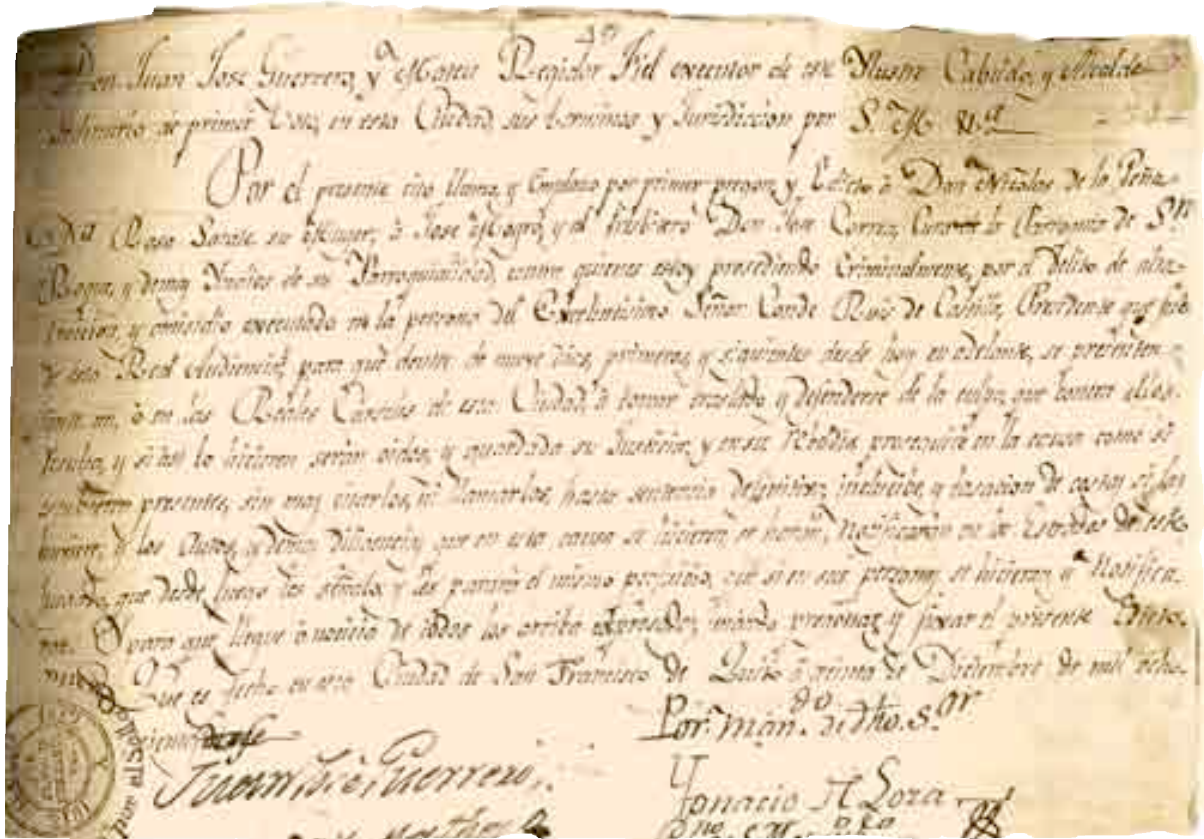 Don Juan José Guerrero, y Mateu Regidor Fiel executor de este Ilustre Cabildo, y Alcalde
Ordinario de primer Voto, en esta Ciudad, sus terminos y Jurisdiccion por S. M.
Por el presente cito llamo, y Emplazo por primer pregon, y Edicto à Don Nicolas de la Peña
Rosa Sarate su Muger, à Jose Magro, y el Presbitero Don José Correa, Cura de la Parroquia de Sn.
Roque, y demas de su Parroquialidad, contra quienes estoy procediendo Criminalmente, por el delito de alta
traicion, y omicidio executado en la persona del Excelentisimo Señor Conde Ruis de Castilla, Presidente que fue
de esta Real Audiencia, para que dentro de nueve dias, primeros, y siguientes desde hoy en adelante, se presenten
ante mi, ò en las Reales Carceles de esta Ciudad, à tomar traslado, y defenderse de la culpa, que contra ellos
resulta, y si asi lo hicieren seran oidos, y guardada su Justicia, y en su Rebeldia proseguire en la causa como si
estubieren presentes, sin mas citarlos, ni llamarlos, hasta sentencia definitiva, inclusibe, y tasacion de costas si las
hubiere, y los Autos, y demas diligencias, que en esta causa se hicieren, se haran, Notificaran en los Estrados de este
Juzgado, que desde luego les señalo, y les pararà el mismo perjuicio, que si en sus personas se hicieran, y Notifica
Y para que llegue à noticia de todos los arriba expresados, mando pregonar, y fixar el presente Edicto.
Que es fecho en esta Ciudad de San Francisco de Quito à treinta de Diciembre de mil ocho
Juan José Guerrero
Por man.do de dho. S.or
Ygnacio Lora